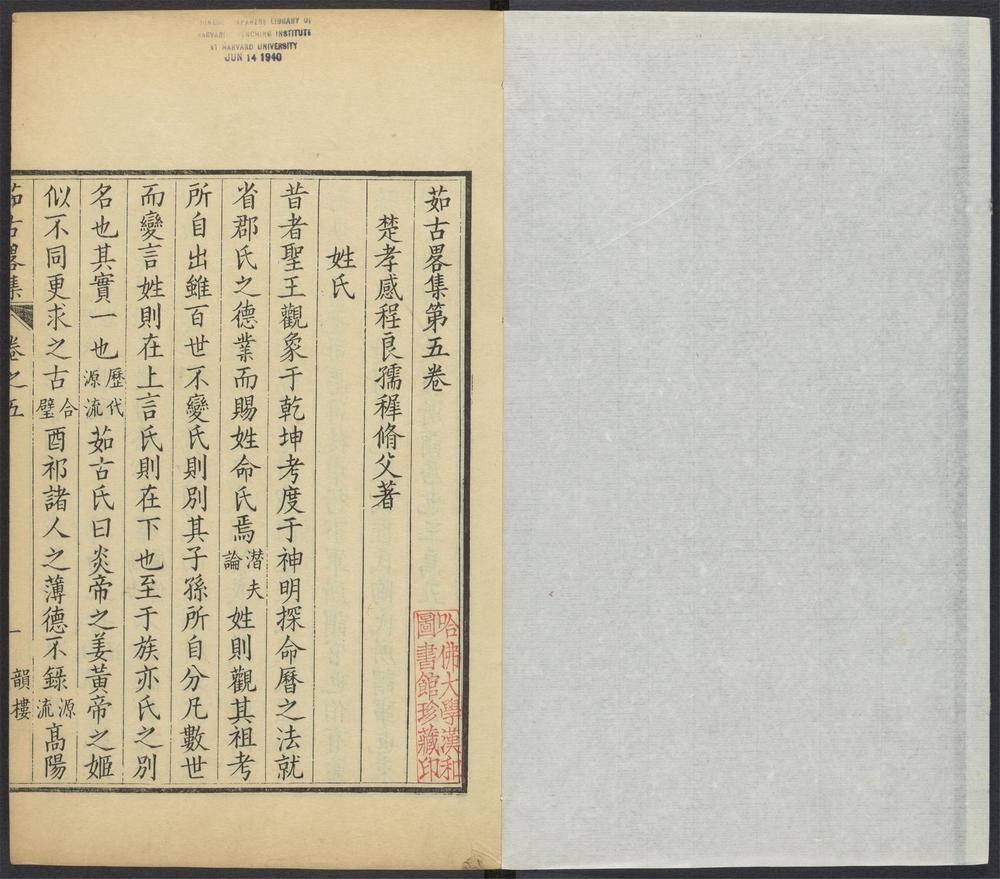 CHINESE JAPANESE LIBRARY OF
HARVARD YENCHING INSTITUTE
AT HARVARD UNIVERSITY
JUN 14 1940
茹古畧集第五卷
楚孝感程良孺穉脩父著
姓氏
昔者聖王觀象于乾坤考度于神明探命曆之法就
省郡氏之德業而賜姓命氏焉潛夫論姓則觀其祖考
所自出雖百世不變氏則別其子孫所自分凡數世
而變言姓則在上言氏則在下也至于族亦氏之別
名也其實一也歷代源流茹古氏曰炎帝之姜黃帝之姬
似不同更求之古合璧酉祁諸人之薄德不錄源流高陽
茹古畧集
卷之五
一
韻樓
哈佛大學漢和
圖書館珍藏印